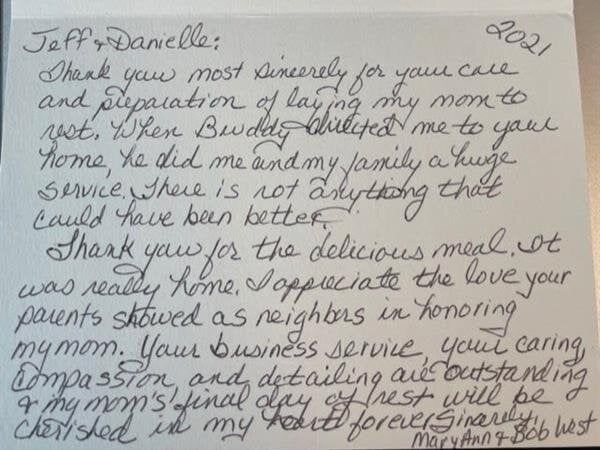 2021
Jeff & Danielle:
Thank you most sincerely for your care
and preparation of laying my mom to
rest. When Buddy directed me to your
home, he did me and my family a huge
service. There is not anything that
could have been better.
Thank you for the delicious meal. It
was really home. I appreciate the love your
parents showed as neighbors in honoring
my mom. Your business service, your caring,
compassion, and detailing are outstanding
& my mom's final day of rest will be
cherished in my heart forever. Sincerely,
Mary Ann & Bob West